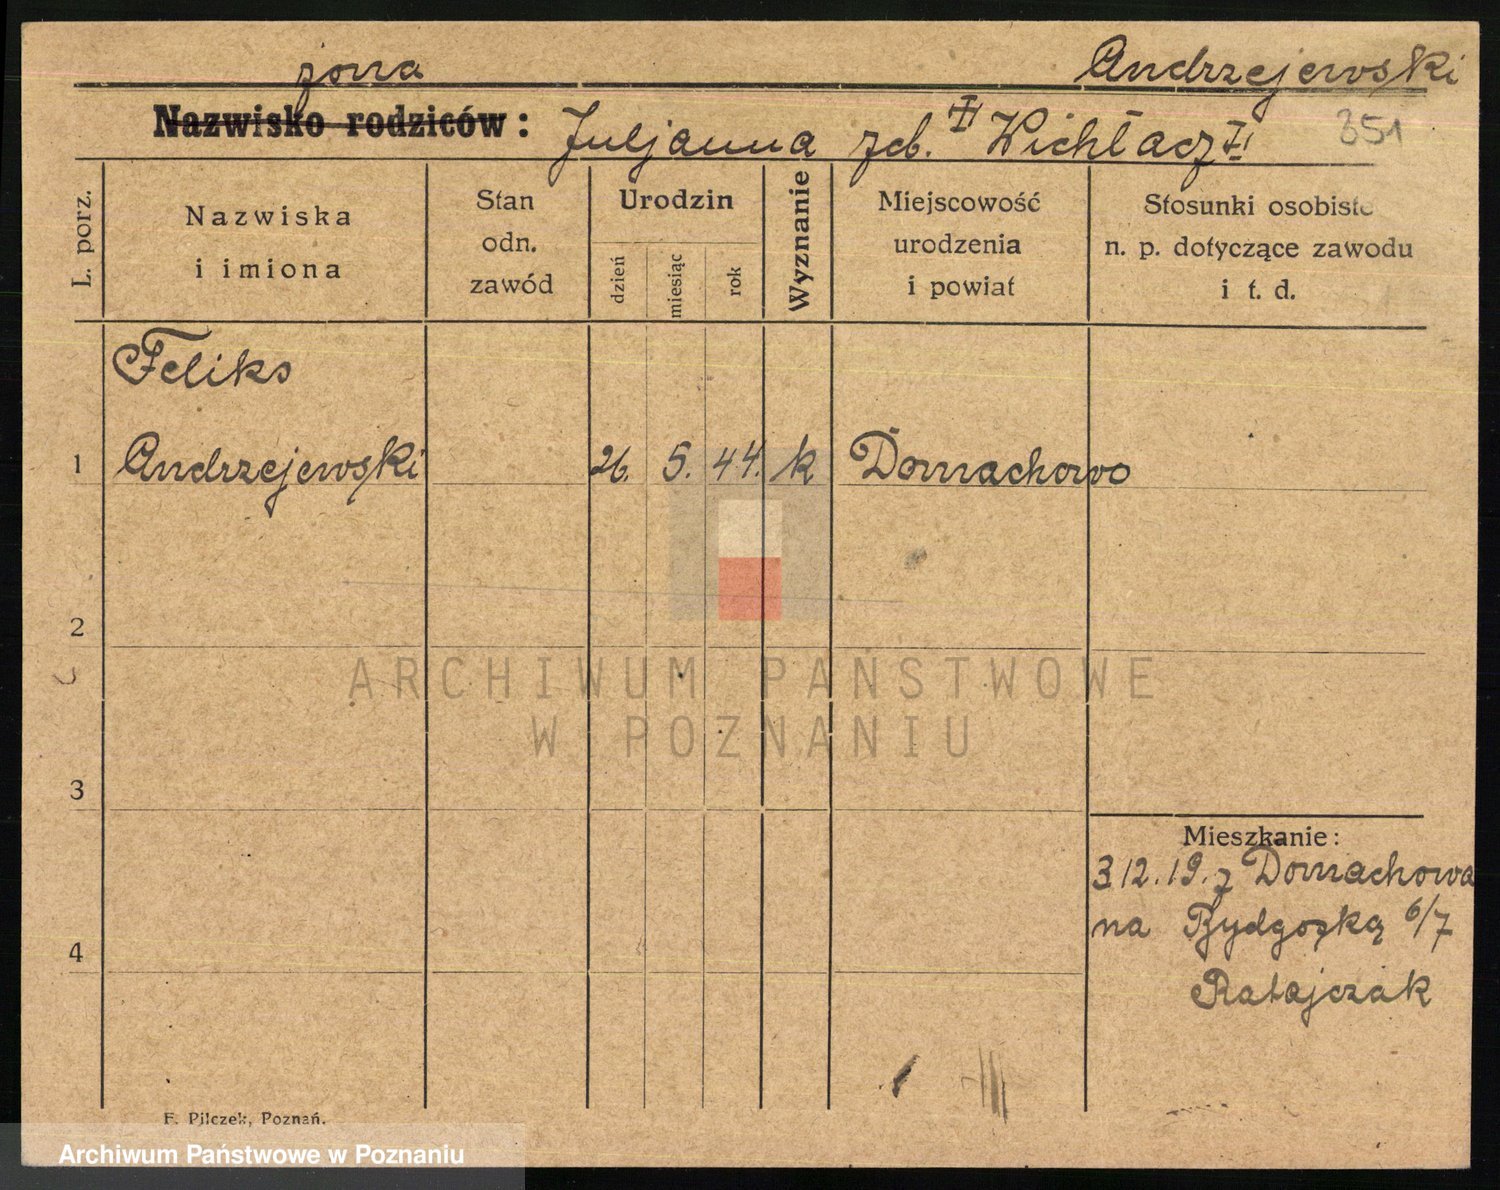 żona Andrzejewski
Nazwisko rodziców: Juljanna zeb. II Wichłacz II 351
L. porz.
Nazwiska
i imiona
Stan
odn.
zawód
Urodzin
dzień
miesiąc
rok
Wyznanie
Miejscowość
urodzenia
i powiat
Stosunki osobiste
n. p. dotyczące zawodu
i t. d.
Feliks
1 Andrzejewski 26. 5. 44. k Domachowo
2
3
4
Mieszkanie:
3 12. 19. z Domachowa
na Bydgoską 6/7
Ratajczak
F. Pilczek, Poznań.
ARCHIWUM PAŃSTWOWE
W POZNANIU
Archiwum Państwowe w Poznaniu